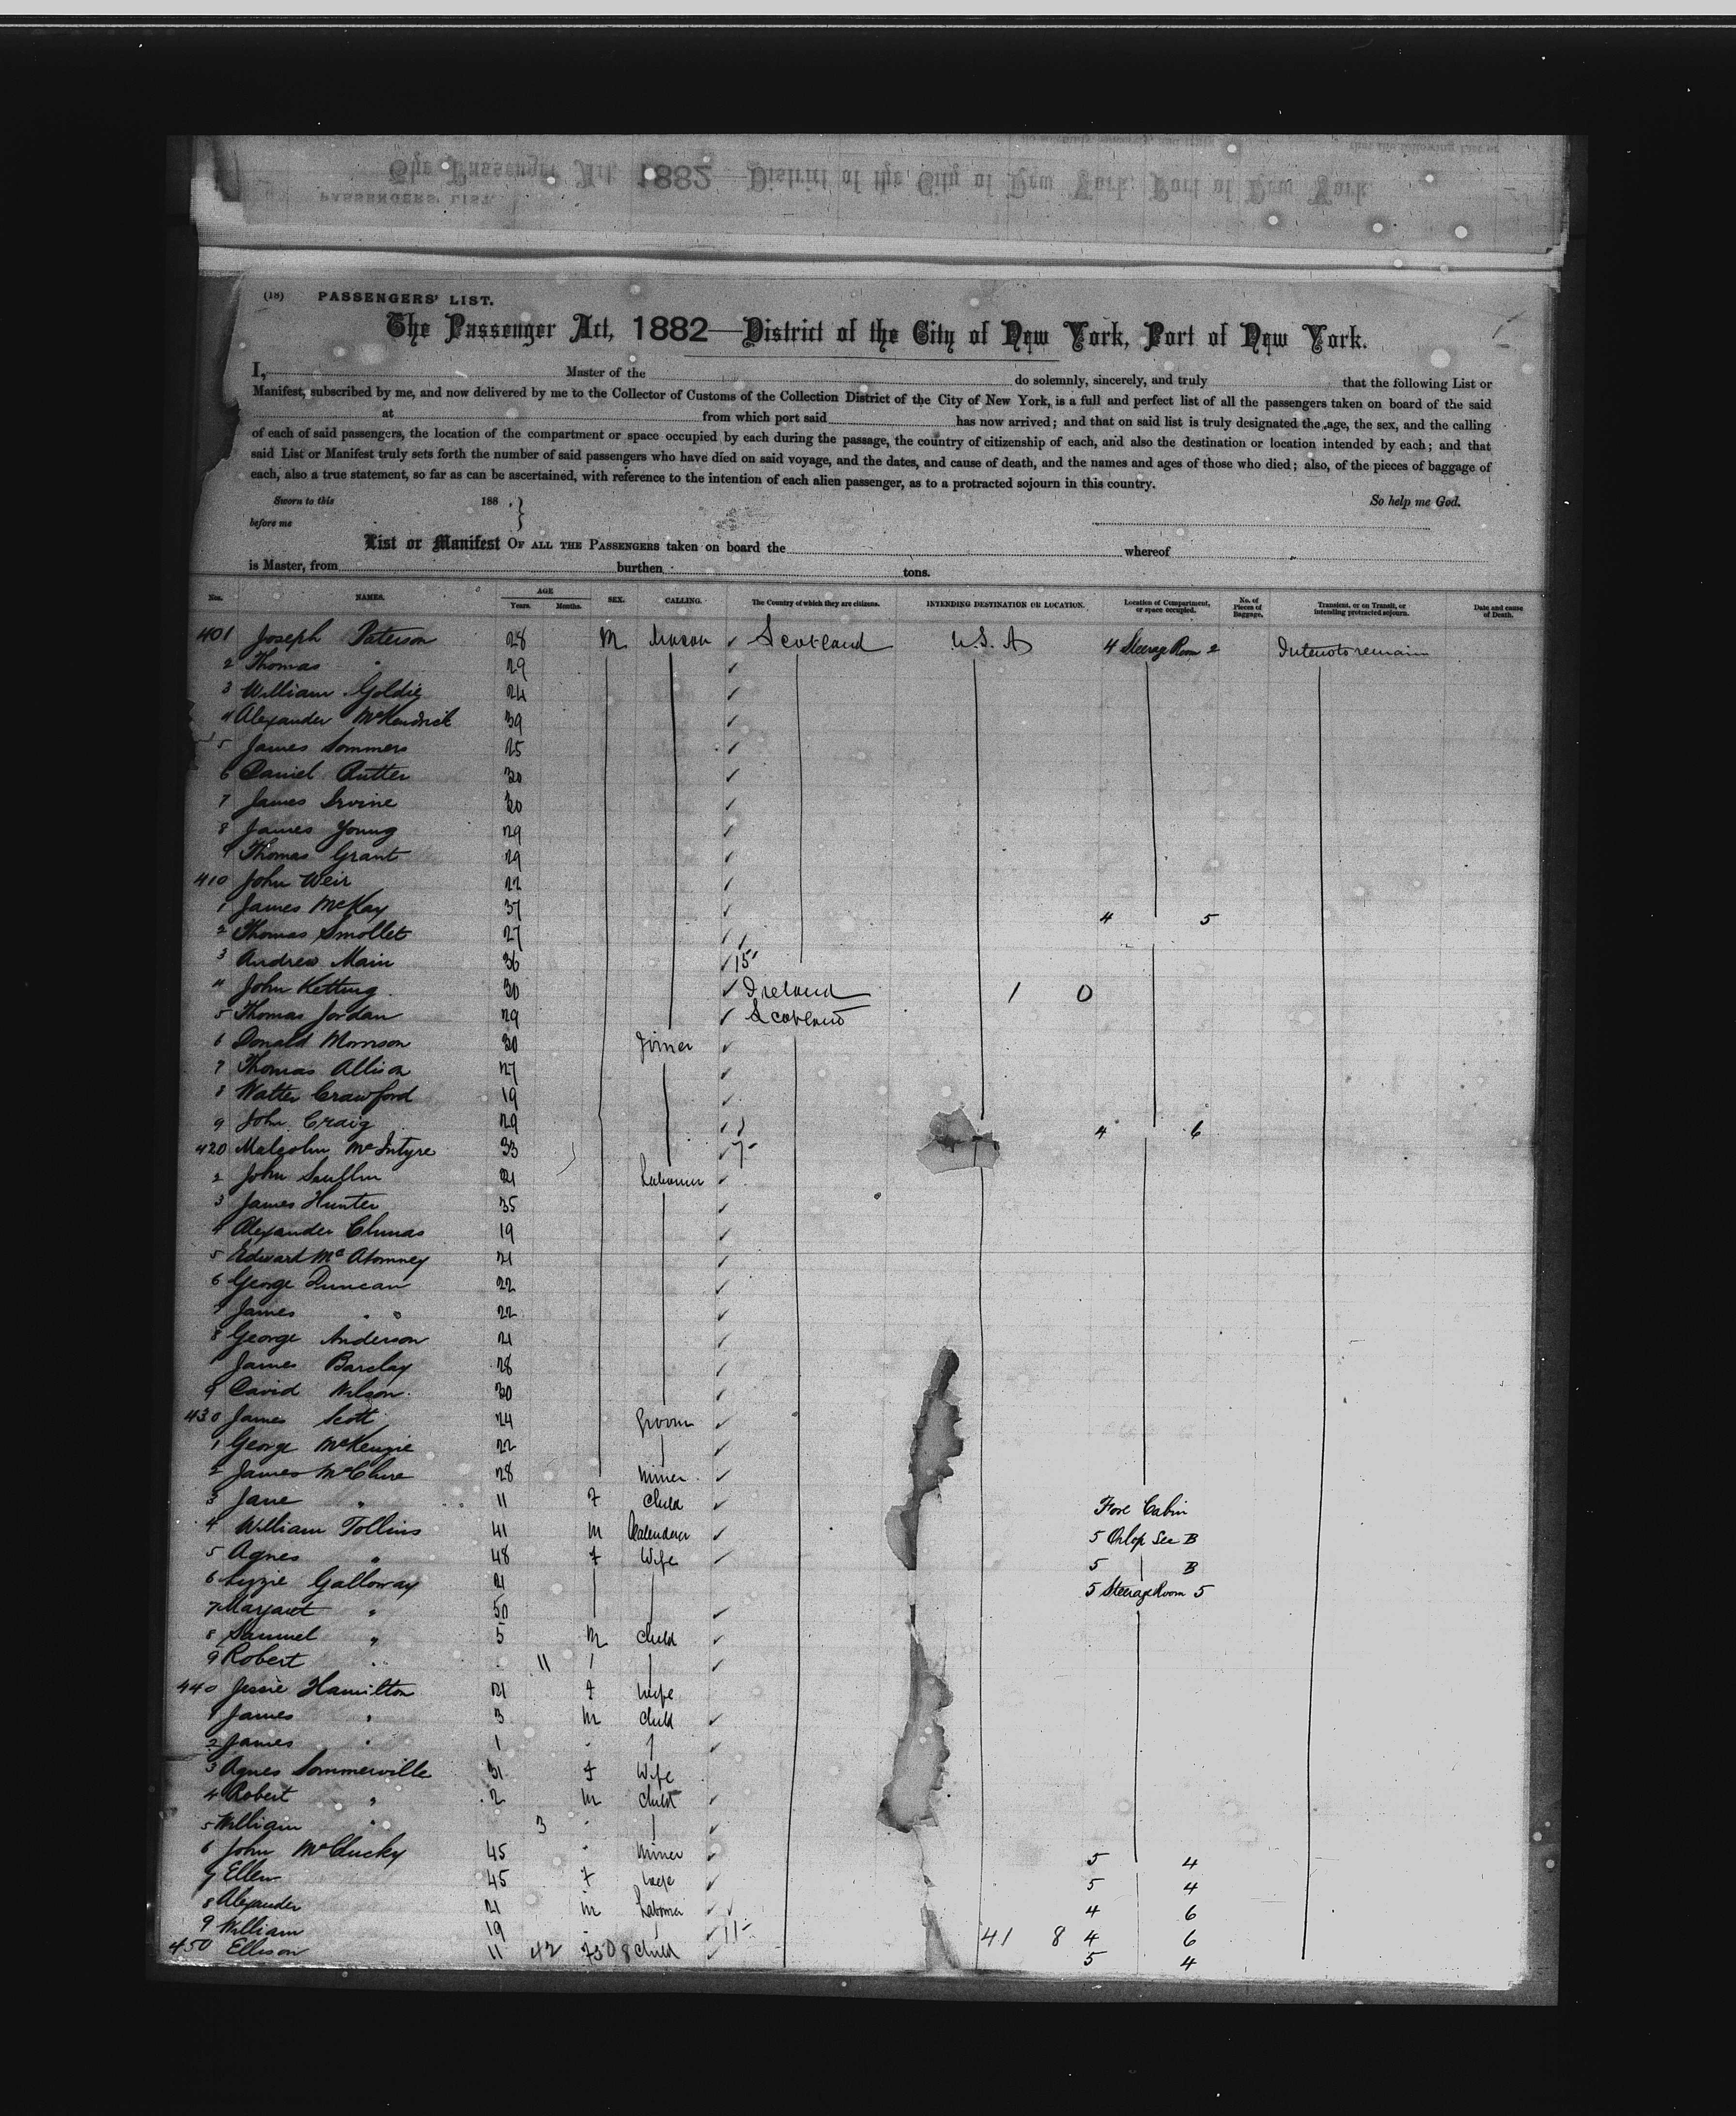 The Passenger Act, 1882—District of the City of New York, Port of New York.
PASSENGERS' LIST.
(18) PASSENGERS' LIST.
The Passenger Act, 1882—District of the City of New York, Port of New York.
I, Master of the do solemnly, sincerely, and truly that the following List or
Manifest, subscribed by me, and now delivered by me to the Collector of Customs of the Collection District of the City of New York, is a full and perfect list of all the passengers taken on board of the said
at from which port said has now arrived; and that on said list is truly designated the age, the sex, and the calling
of each of said passengers, the location of the compartment or space occupied by each during the passage, the country of citizenship of each, and also the destination or location intended by each; and that
said List or Manifest truly sets forth the number of said passengers who have died on said voyage, and the dates, and cause of death, and the names and ages of those who died; also, of the pieces of baggage of
each, also a true statement, so far as can be ascertained, with reference to the intention of each alien passenger, as to a protracted sojourn in this country.
Sworn to this 188 . } So help me God.
before me
List or Manifest OF ALL THE PASSENGERS taken on board the whereof
is Master, from burthen tons.
Nos. NAMES. AGE Years. Months. SEX. CALLING. The Country of which they are citizens. INTENDING DESTINATION OR LOCATION. Location of Compartment, or space occupied. No. of Pieces of Baggage. Transient, or on Transit, or intending protracted sojourn. Date and cause of Death.
401 Joseph Paterson 28 M Mason ✓ Scotland U.S.A 4 Steerage Room 2 Intends to remain
2 Thomas " 29 ✓
3 William Goldie 24 ✓
4 Alexander McKendrick 39 ✓
5 James Sommers 25 ✓
6 Daniel Rutter 30 ✓
7 James Irvine 30 ✓
8 James Young 29 ✓
9 Thomas Grant 29 ✓
410 John Weir 22 ✓
1 James McKay 37 ✓ 4 5
2 Thomas Smollet 27 ✓
3 Andrew Main 36 ✓ 15
4 John Ketting 30 ✓ Ireland 1 0
5 Thomas Jordan 29 ✓ Scotland
6 Donald Morrison 30 Joiner ✓
7 Thomas Allison 27 ✓
8 Walter Crawford 19 ✓
9 John Craig 29 ✓ 4 6
420 Malcolm McIntyre 33 ✓ 7
2 John 21 Labourer ✓
3 James Hunter 35 ✓
4 Alexander Clunas 19 ✓
5 Edward 21 ✓
6 George Duncan 22 ✓
7 James " 22 ✓
8 George Anderson 21 ✓
James Barclay 28 ✓
9 David Wilson 30 ✓
430 James Scott 24 Groom ✓
1 George McKenzie 22 ✓
2 James McClure 28 Miner ✓
3 Jane " 11 F Child ✓ Fore Cabin
4 William Tollins 41 M Calenderer ✓ 5 Orlop Sec B
5 Agnes " 48 F Wife ✓ 5 B
6 Lizzie Galloway 21 5 Steerage Room 5
7 Margaret " 50 ✓
8 Samuel " 5 M Child ✓
9 Robert " 11 ✓
440 Jessie Hamilton 21 F Wife
1 James " 3 M Child ✓
2 James " 1 ✓
3 Agnes Sommerville 31 F Wife
4 Robert " 2 M Child ✓
5 William " 3 ✓
6 John McClucky 45 Miner ✓ 5 4
7 Ellen 45 F Wife ✓ 5 4
8 Alexander 21 M Laborer ✓ 4 6
9 William 19 ✓ 11 41 8 4 6
450 Ellison 11 42 F 508 Child ✓ 5 4